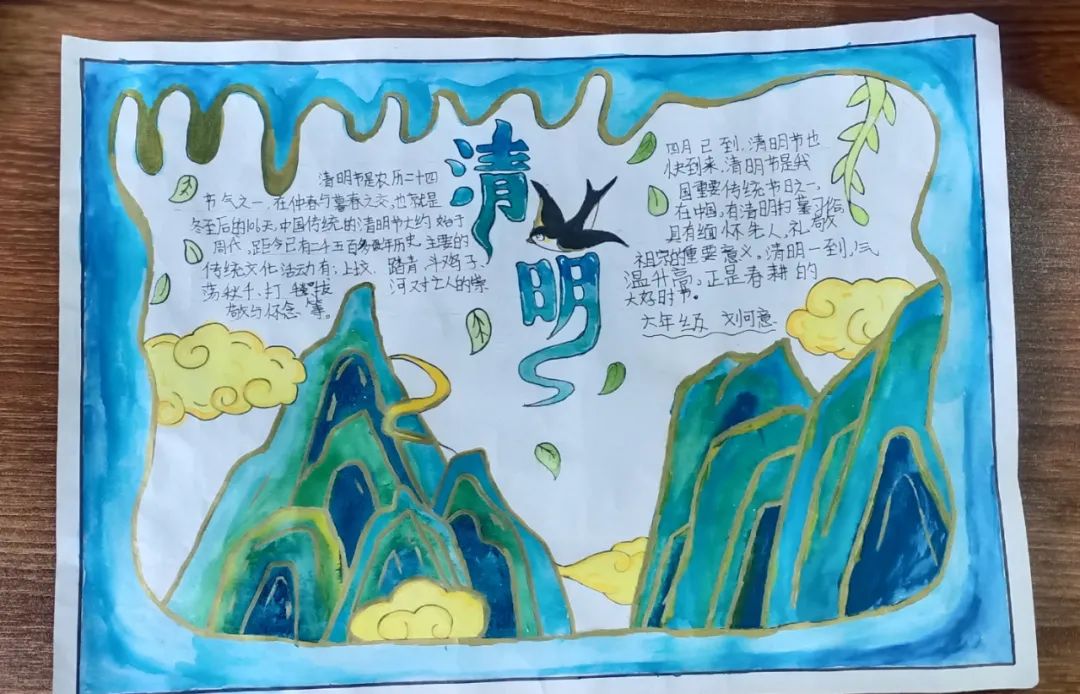 清明
清明节是农历二十四
节气之一,在仲春与暮春之交,也就是
冬至后的106天,中国传统的清明节大约始于
周代,距今已有二千五百多年历史,主要的
传统文化活动有:上坟、踏青、斗鸡子、
荡秋千、打毯、拔河 对亡人的崇
敬与怀念 等。
四月已到,清明节也
快到来,清明节是我
国重要传统节日之一,
在中国,有清明扫墓习俗
具有缅怀先人,礼敬
祖宗的重要意义。清明一到,气
温升高,正是春耕的
大好时节。
六年级 刘可意